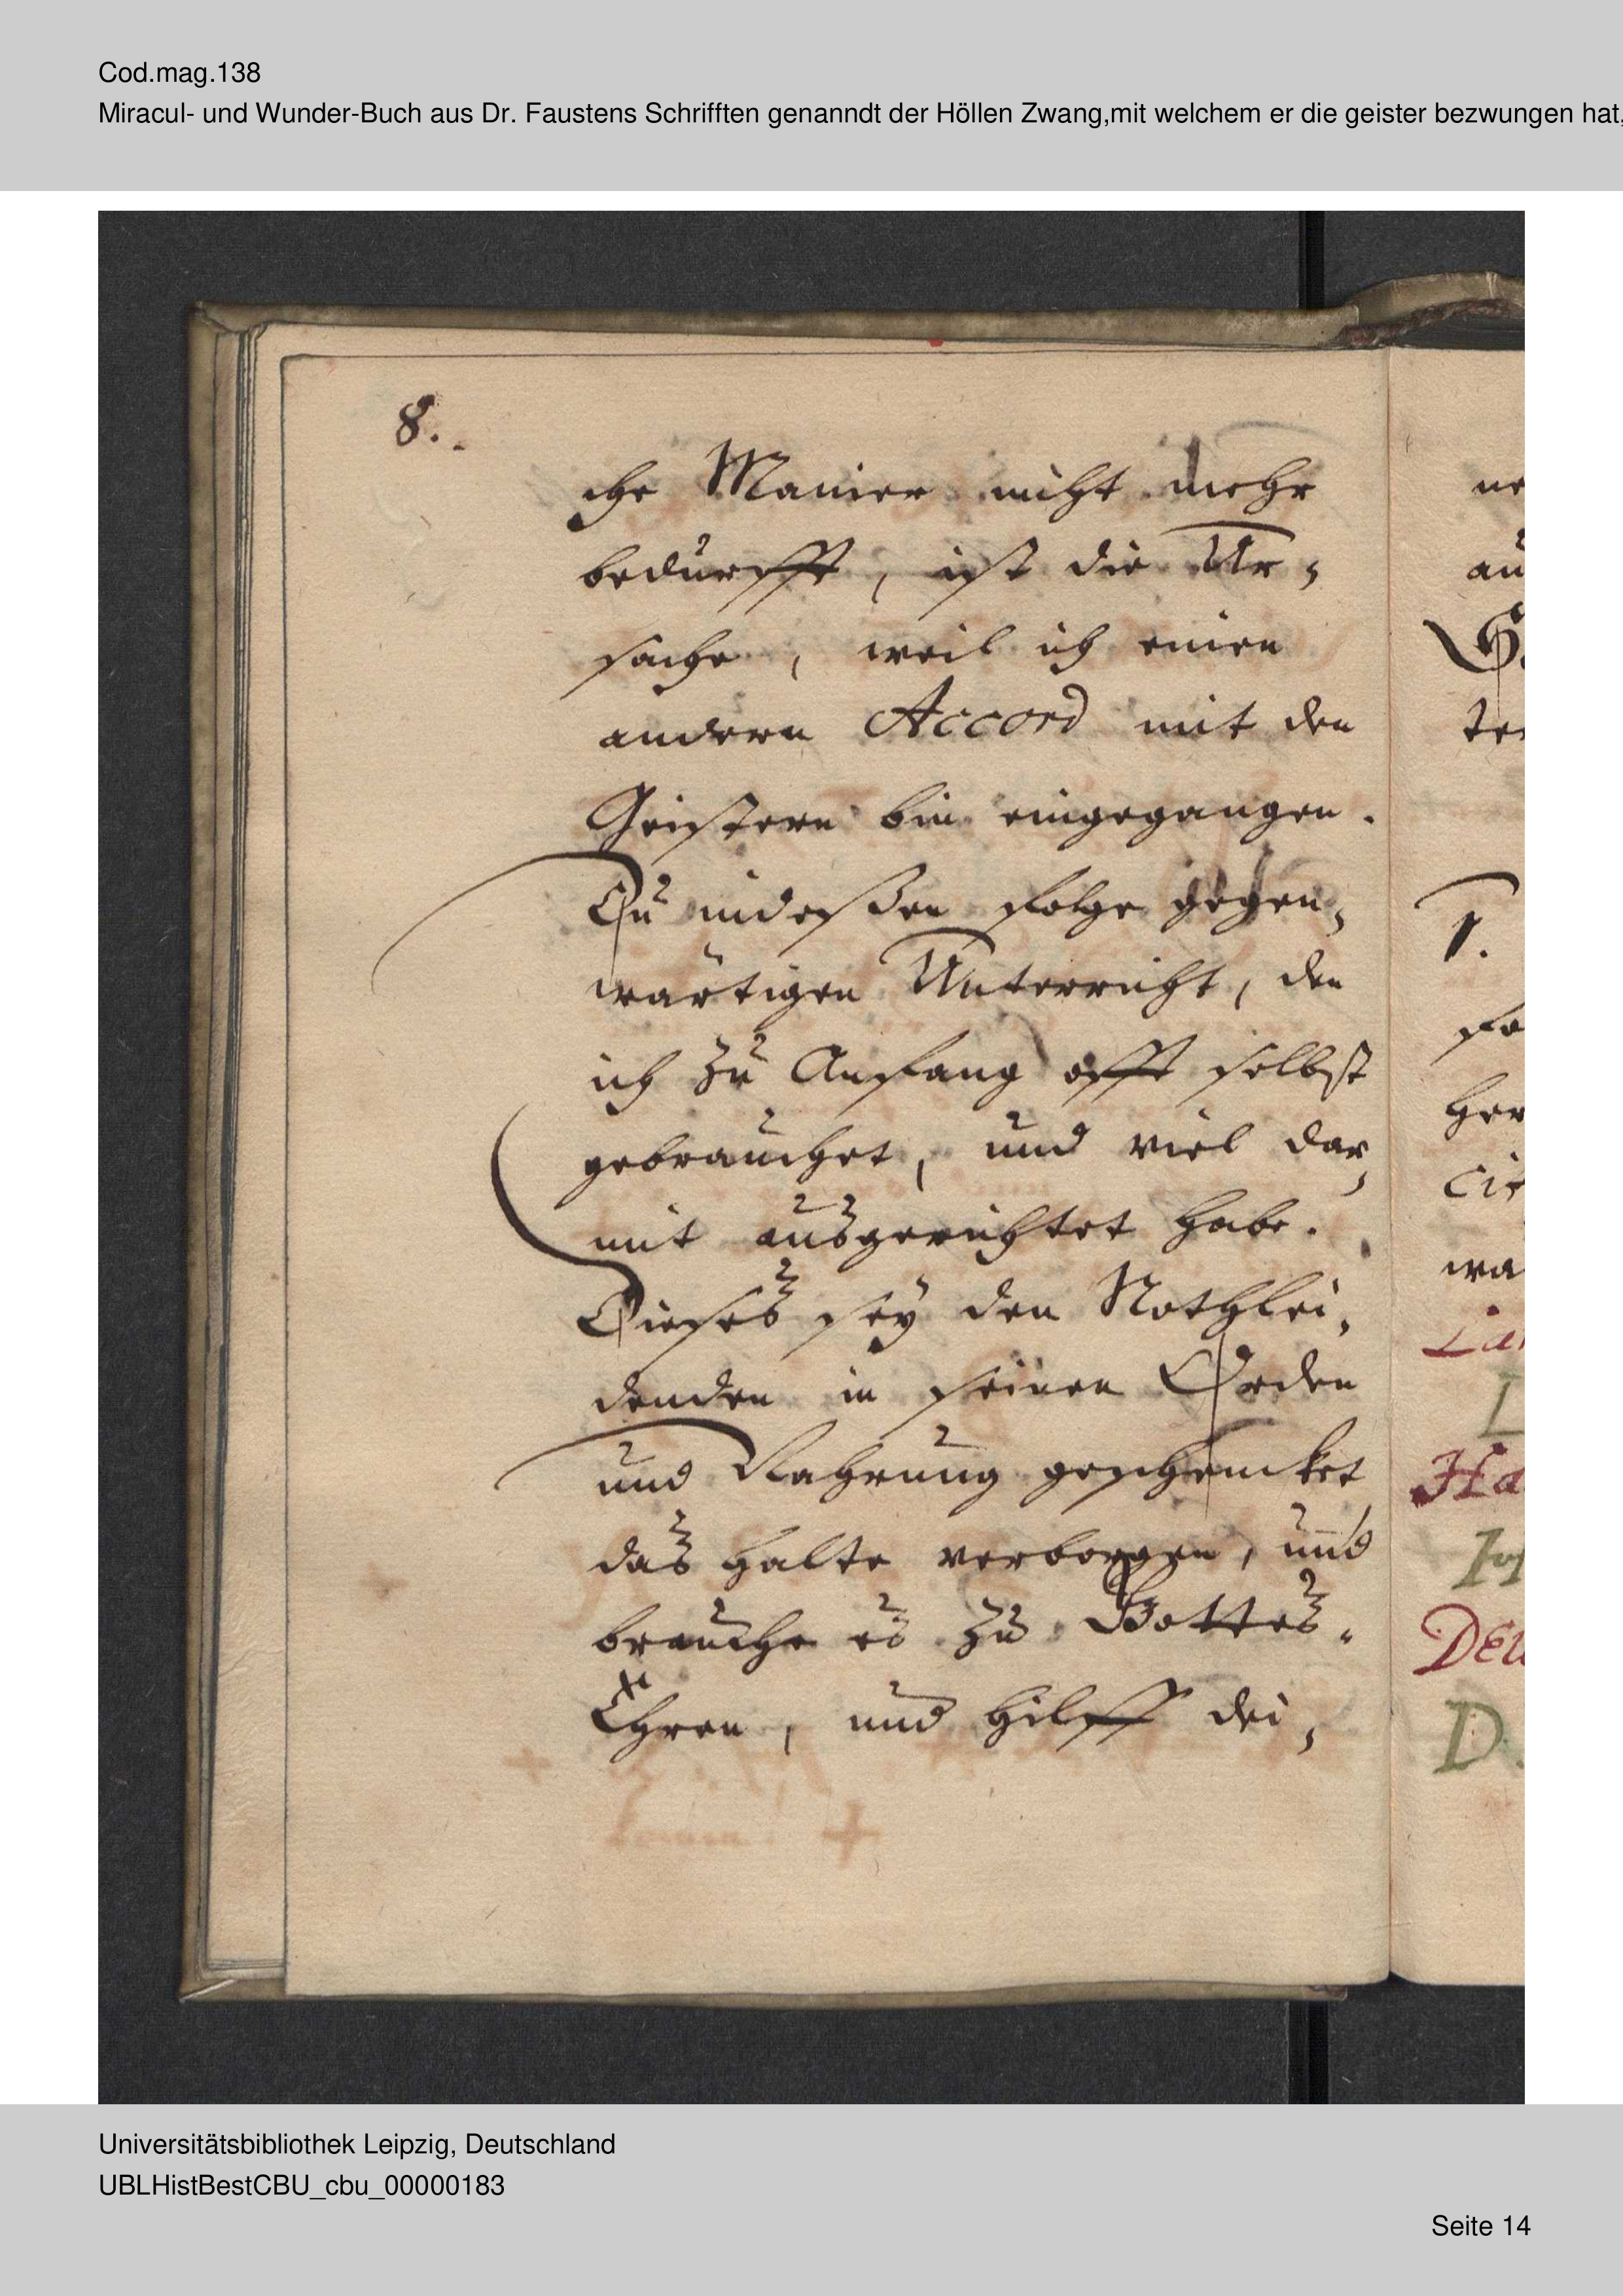 Cod.mag.138
Miracul- und Wunder-Buch aus Dr. Faustens Schrifften genanndt der Höllen Zwang,mit welchem er die geister bezwungen hat,
8.
che Manier nicht mehr
bedurfft, ist die Ur-
sache, weil ich einen
andern Accord mit den
Geistern bin eingegangen.
Du indeßen folge gegen-
wärtigen Unterricht, den
ich zu Anfang offt selbst
gebrauchet, und viel dar-
mit ausgerichtet habe.
Dieses sey den Nothlei-
denden in seinen Orden
und Nahrung geschencket
das halte verborgen, und
brauche es zu Gottes-
Ehren, und hilff dei-
ne
au
G
te
1.
fo
her
Cir
wa
La
L
Ha
Deu
D.
Universitätsbibliothek Leipzig, Deutschland
UBLHistBestCBU_cbu_00000183
Seite 14